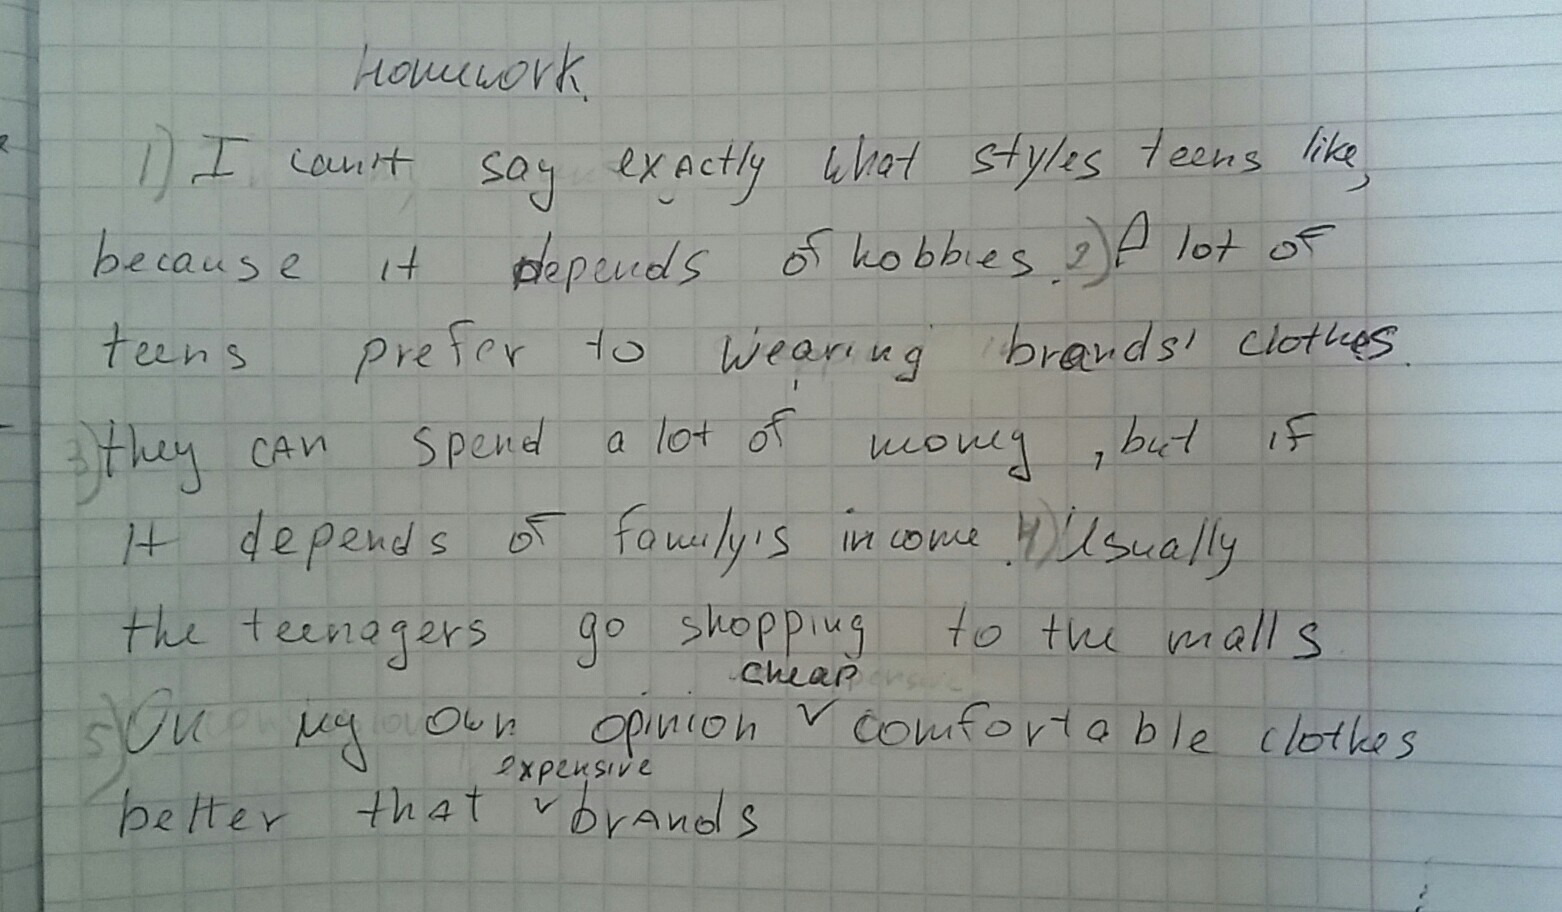 Homework.
1) I can't say exactly what styles teens like,
because it depends of hobbies. 2) A lot of
teens prefer to wearing brands' clothes.
3) they can spend a lot of money, but if
it depends of family's income. 4) Usually
the teenagers go shopping to the malls.
cheap
5) On my own opinion v comfortable clothes
expensive
better that v brands